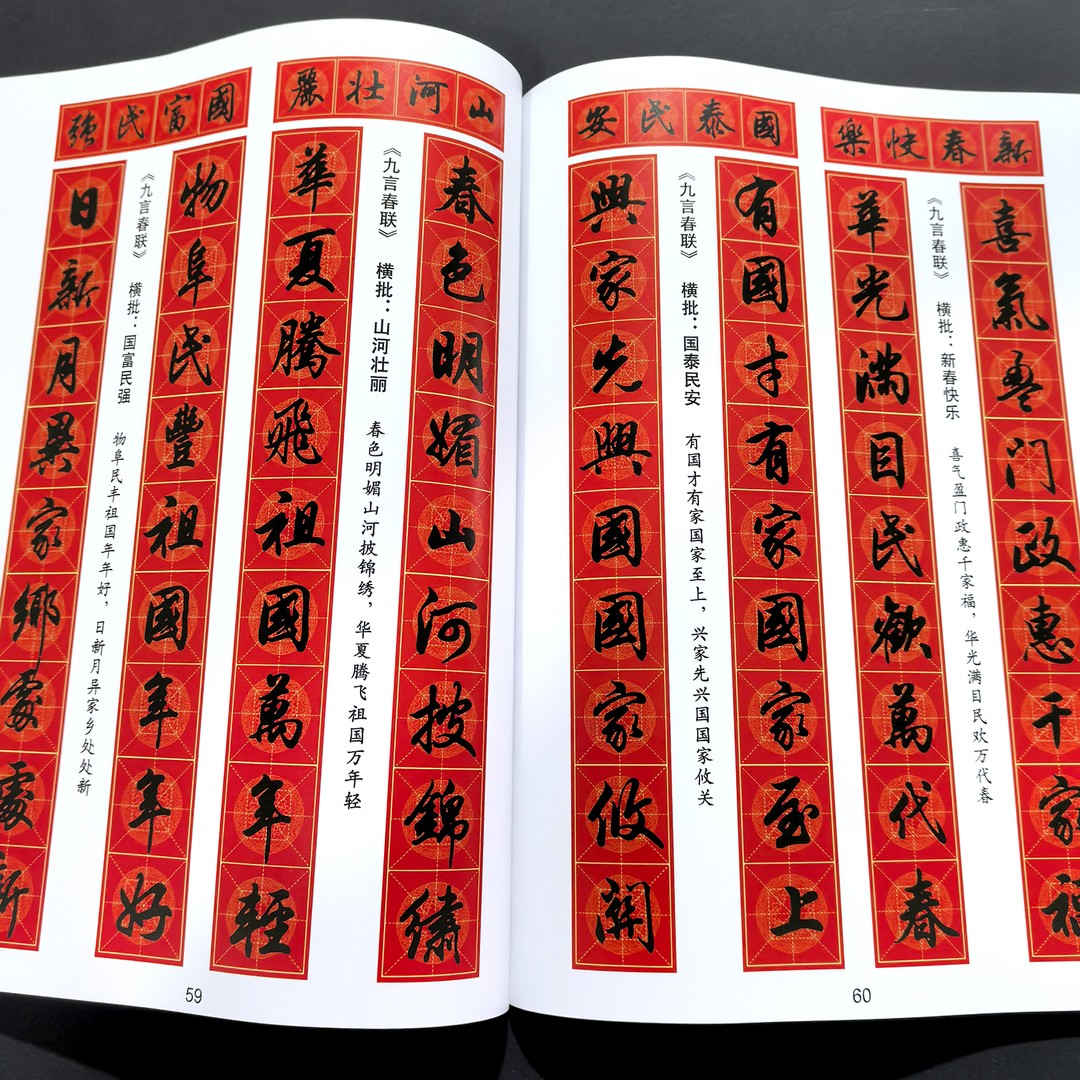 山河壯麗
春色明媚山河披錦繡
《九言春联》 横批：山河壮丽 春色明媚山河披锦绣，华夏腾飞祖国万年轻
華夏騰飛祖國萬年輕
國富民強
物阜民豐祖國年年好
《九言春联》 横批：国富民强 物阜民丰祖国年年好，日新月异家乡处处新
日新月異家鄉處處新
59
新春快樂
喜氣盈門政惠千家福
《九言春联》 横批：新春快乐 喜气盈门政惠千家福，华光满目民欢万代春
華光滿目民歡萬代春
國泰民安
有國才有家國家至上
《九言春联》 横批：国泰民安 有国才有家国家至上，兴家先兴国国家攸关
興家先興國國家攸關
60